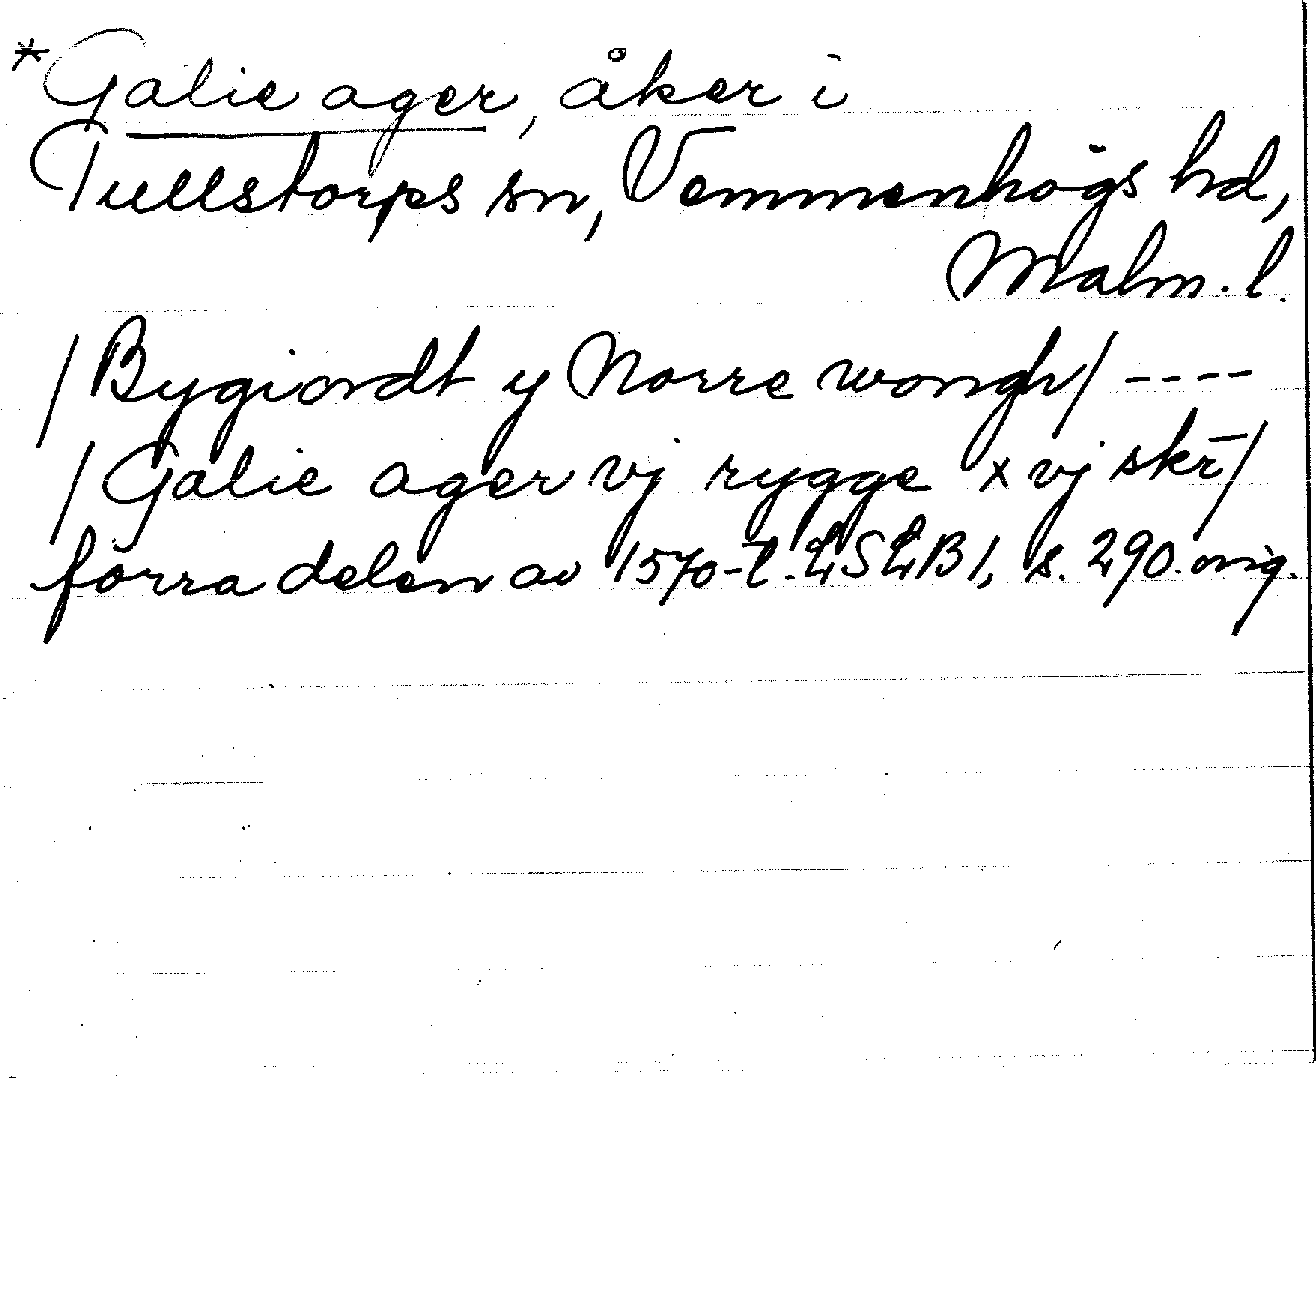 *Galie ager, åker i
Tullstorps sn, Vemmenhögs hd,
Malm. l.
/Bygiordt y Norre wongh/ ----
/Galie ager vj rygge x vj skr̄/
förra delen av 1570-t. LSLB 1, s. 290. orig.